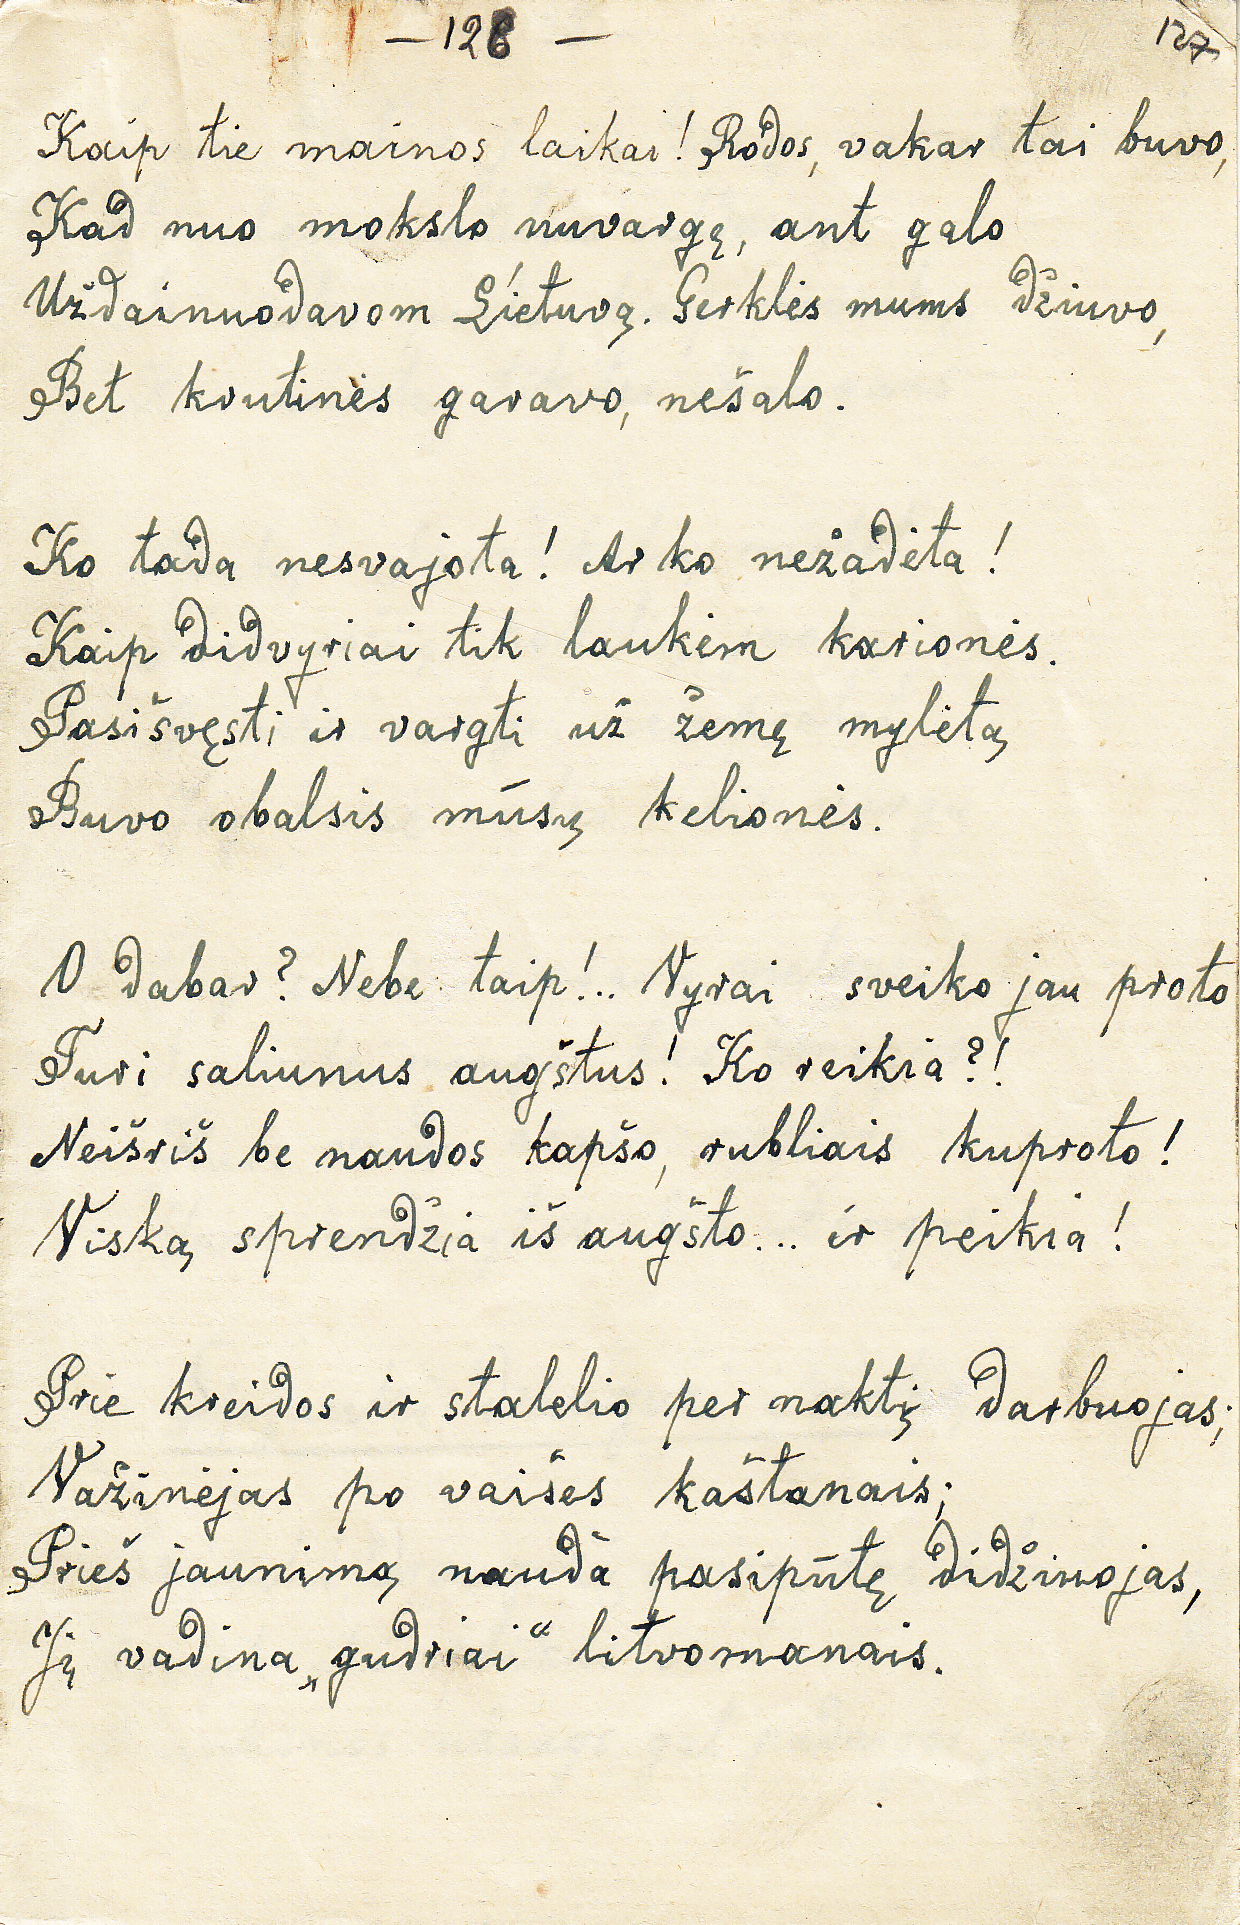 — 126 —
127
Kaip tie mainos laikai! Rodos, vakar tai buvo,
Kad nuo mokslo nuvargę, ant galo
Uždainuodavom Lietuvą. Gerklės mums džiuvo,
Bet krutinės garavo, nešalo.
Ko tada nesvajota! Ar ko nežadėta!
Kaip didvyriai tik laukėm karionės.
Pasišvęsti ir vargti už žemę mylėtą
Buvo obalsis mūsų kelionės.
O dabar? Nebe taip!.. Vyrai sveiko jau proto
Turi saliunus augštus! Ko reikia?!
Neišriš be naudos kapšo, rubliais kuproto!
Viską sprendžia iš augšto... ir peikia!
Prie kreidos ir stalelio per naktį darbuojas;
Važinėjas po vaišes kaštanais;
Prieš jaunimą nauda pasipūtę didžiuojas,
Jį vadina „gudriai“ litvomanais.